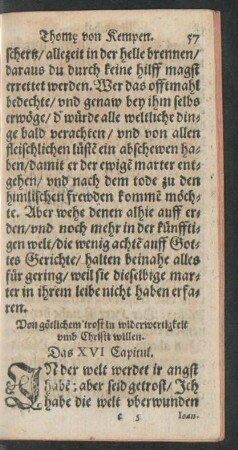 Thomę von Kempen. 57
scherst/ allezeit in der helle brennen/
daraus du durch keine hilff magst
errettet werden. Wer das offtmahl
bedechte/ vnd genaw bey ihm selbs
erwöge/ d' würde alle weltliche din-
ge bald verachten/ vnd von allen
fleischlichen lüstē ein abschewen ha-
ben/ damit er der ewigē marter ent-
gehen/ vnd nach dem tode zu den
himlischen frewden kommē möch-
te. Aber wehe denen alhie auff er-
den/ vnd noch mehr in der künffti-
gen welt/ die wenig achtē auff Got-
tes Gerichte/ halten beinahe alles
für gering/ weil sie dieselbige mar-
ter in ihrem leibe nicht haben erfa-
ren.
Von götlichem trost in widerwertigkeit
vmb Christi willen.
Das XVI Capitul.
IN der welt werdet ir angst
habē: aber seid getrost/ Ich
habe die welt vberwunden
Ioan.